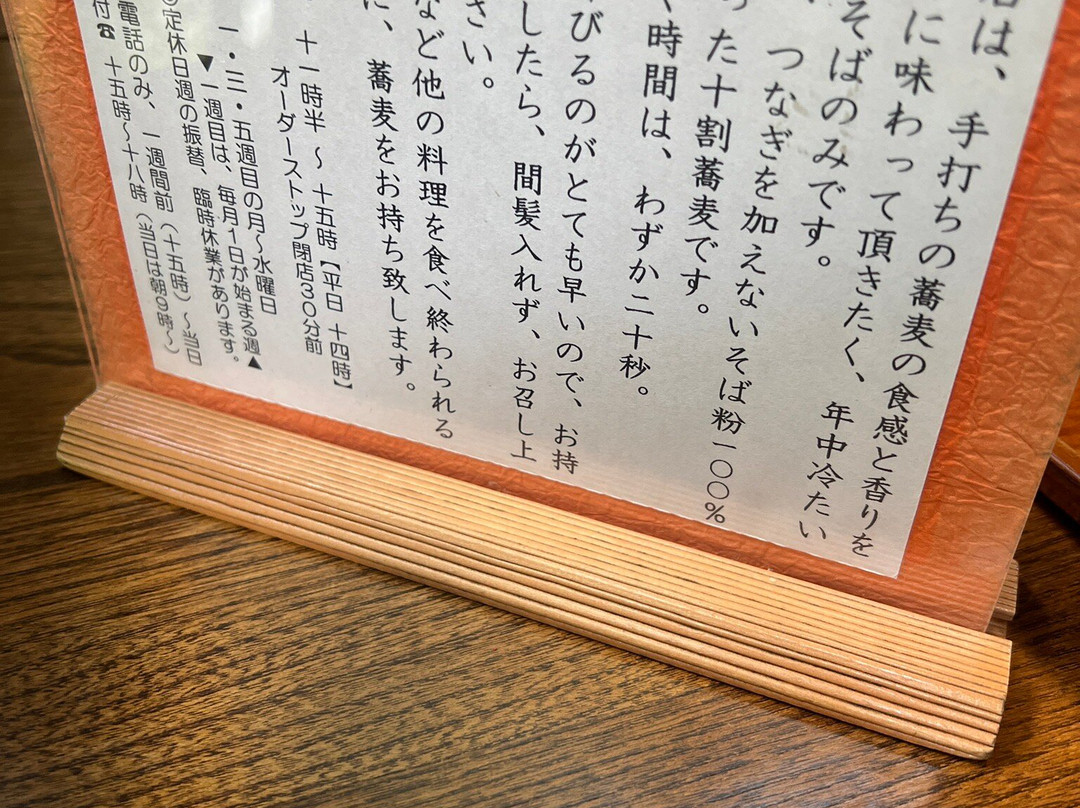 は、手打ちの蕎麦の食感と香りを
に味わって頂きたく、年中冷たい
そばのみです。
つなぎを加えないそば粉一〇〇%
った十割蕎麦です。
時間は、わずか二十秒。
びるのがとても早いので、お持
したら、間髪入れず、お召し上
さい。
など他の料理を食べ終わられる
に、蕎麦をお持ち致します。
十一時半 ～ 十五時【平日 十四時】
オーダーストップ閉店30分前
一・三・五週目の月～水曜日
▼一週目は、毎月1日が始まる週▲
定休日週の振替、臨時休業があります。
電話のみ、一週間前（十五時）～当日
付☎ 十五時～十八時（当日は朝9時～）